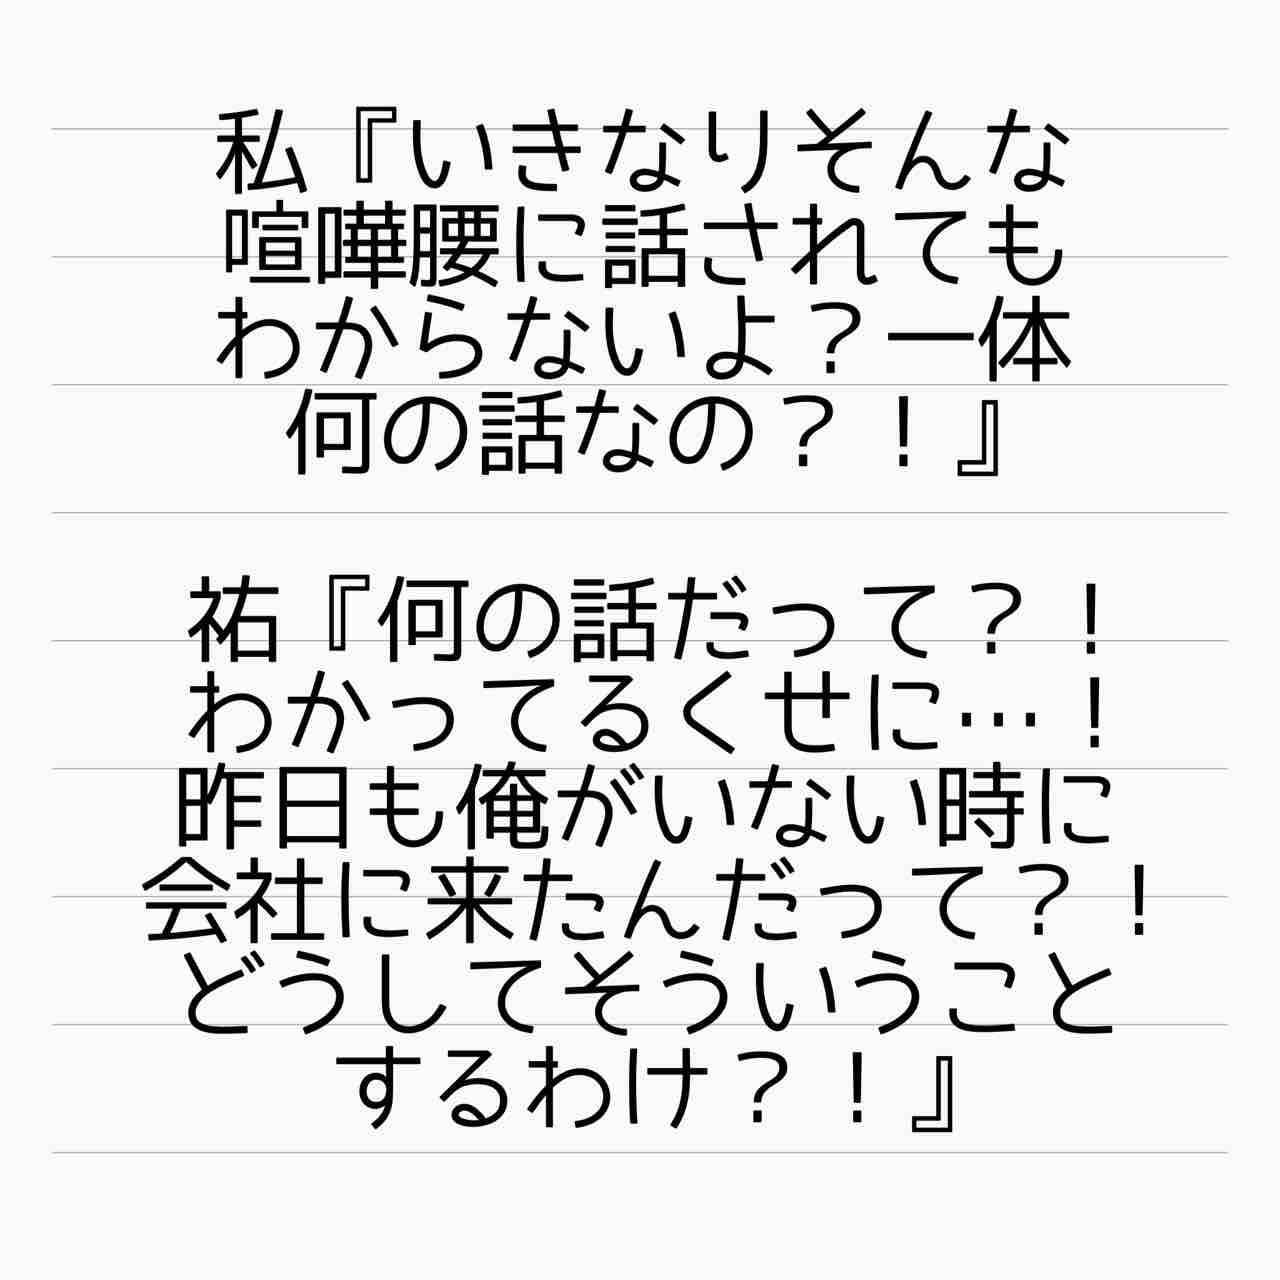 私『いきなりそんな
喧嘩腰に話されても
わからないよ？一体
何の話なの？！』
祐『何の話だって？！
わかってるくせに…！
昨日も俺がいない時に
会社に来たんだって？！
どうしてそういうこと
するわけ？！』